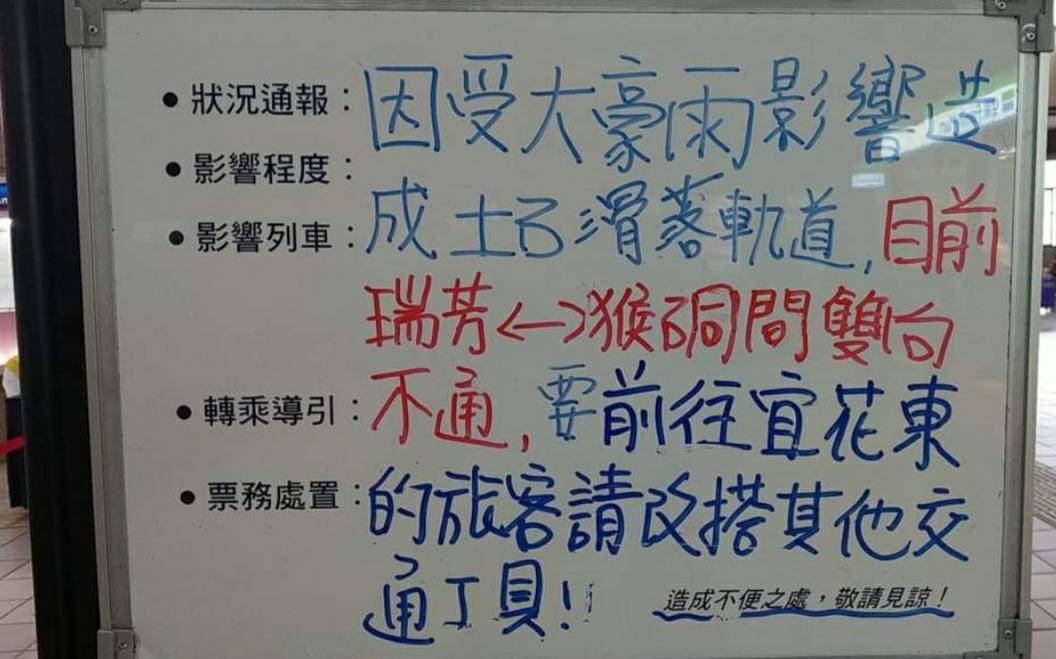 狀況通報：因受大豪雨影響造
影響程度：
影響列車：成土石滑落軌道,目前
瑞芳<—>猴硐間雙向
轉乘導引：不通,要前往宜花東
票務處置：的旅客請改搭其他交
通工具!
造成不便之處，敬請見諒！